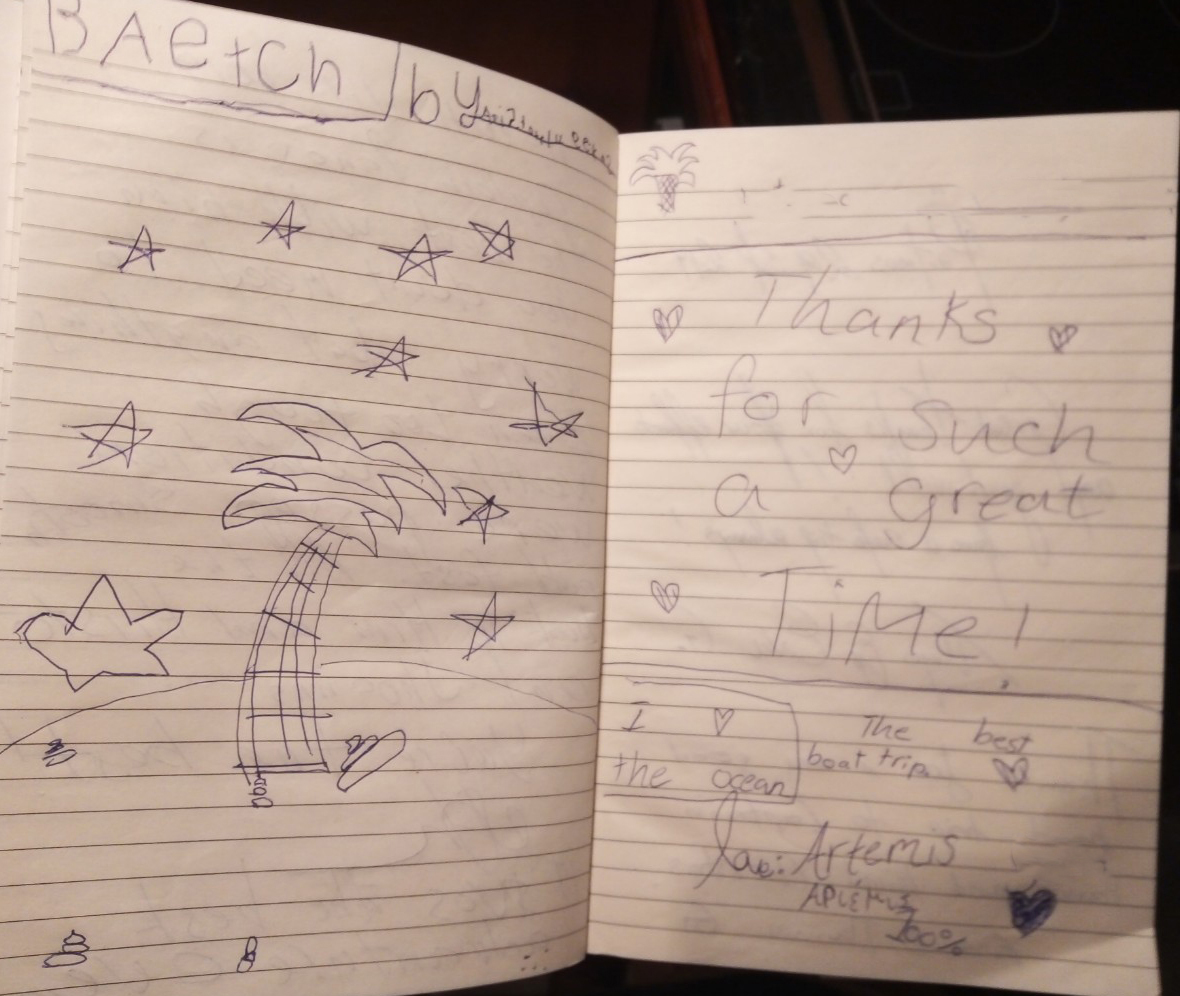 BAetCh by
Thanks
for Such
a great
TiMe!
I ♡
the ocean
The best
boat trip.
Artemis
100%